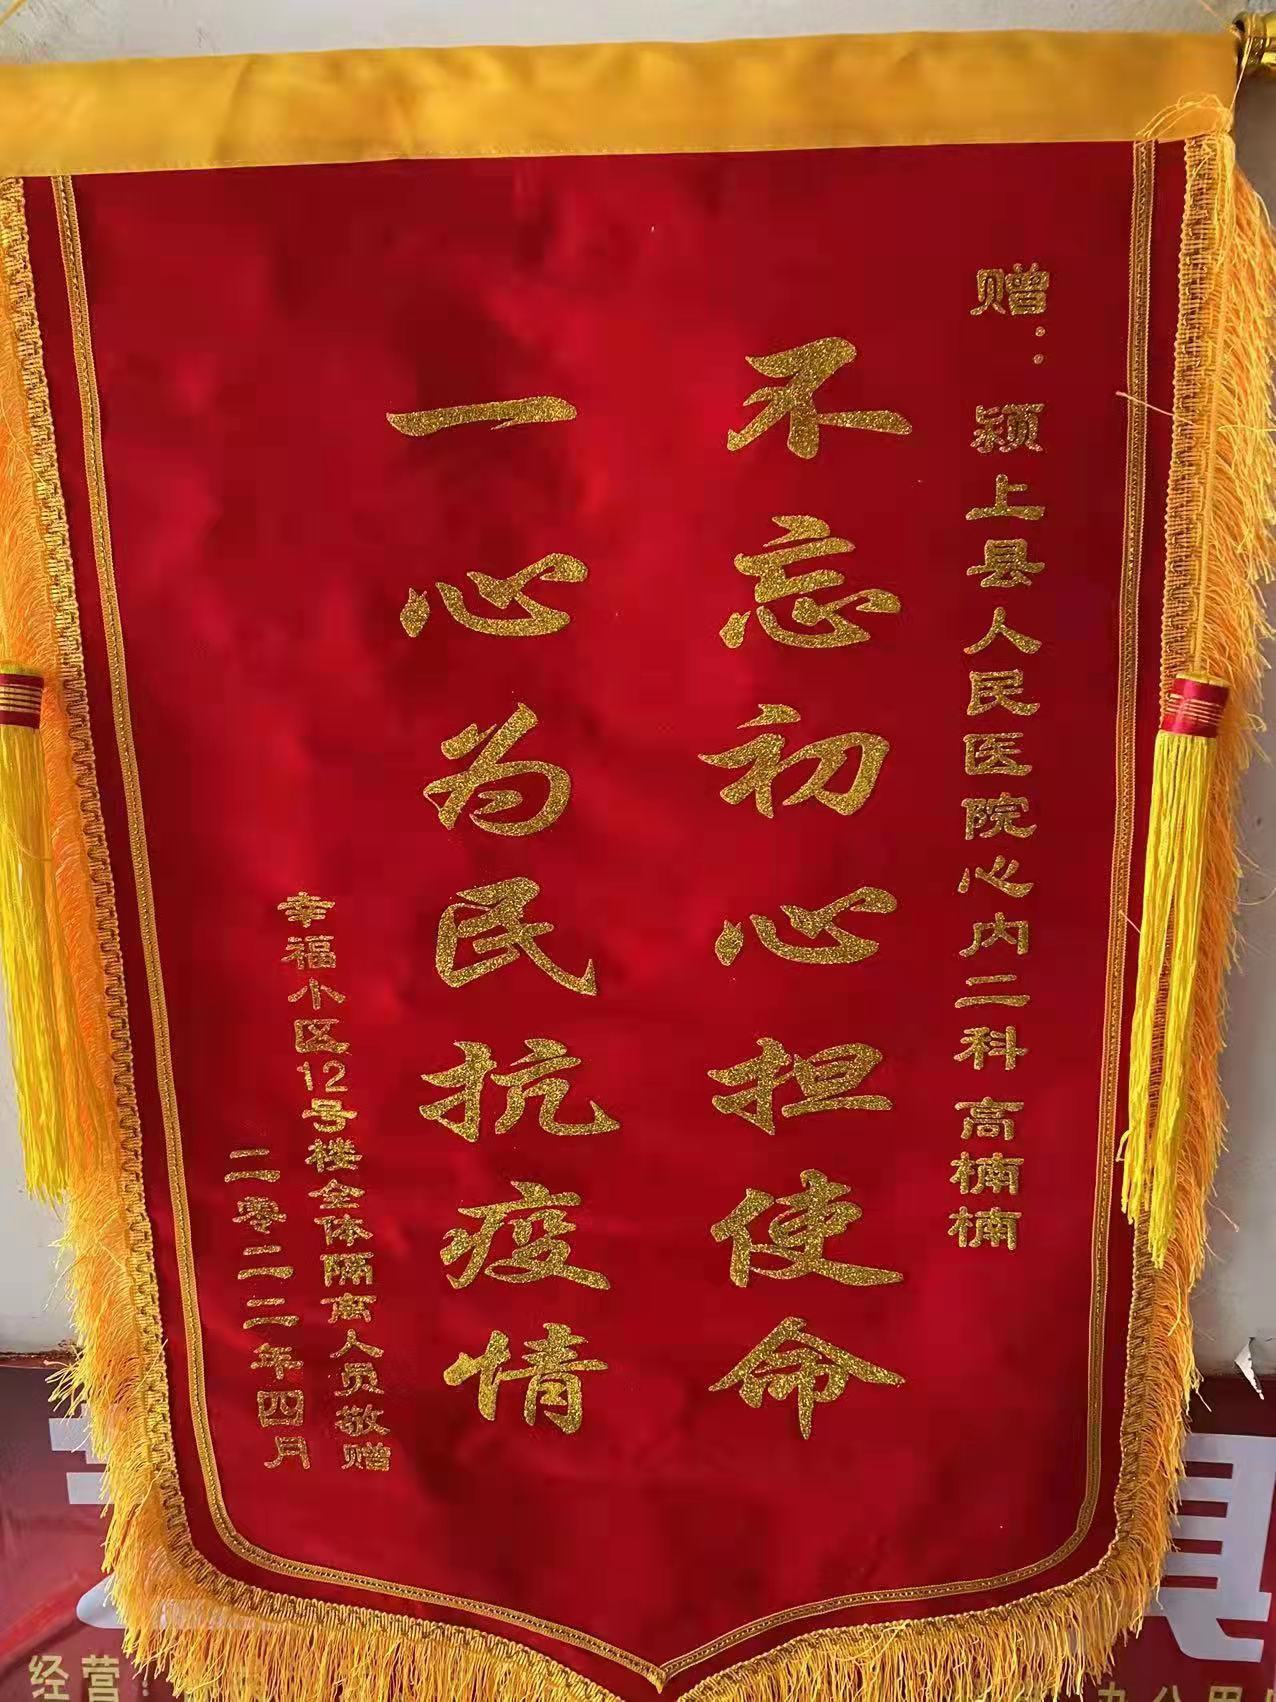 赠：颍上县人民医院心内二科 高楠楠
不忘初心担使命
一心为民抗疫情
幸福小区12号楼全体隔离人员敬赠
二零二二年四月
经营